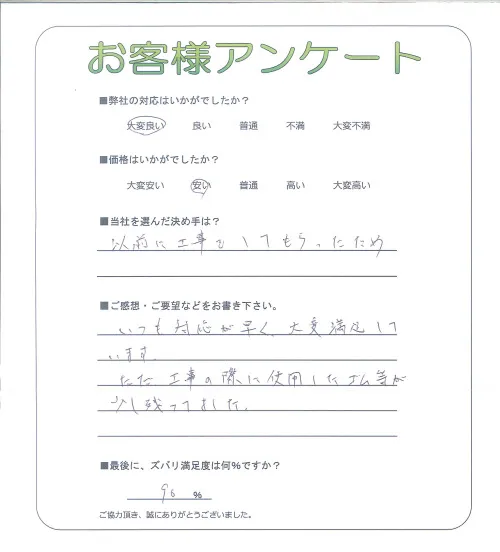 お客様アンケート
■弊社の対応はいかがでしたか？
大変良い 良い 普通 不満 大変不満
■価格はいかがでしたか？
大変安い 安い 普通 高い 大変高い
■当社を選んだ決め手は？
以前に工事をしてもらったため
■ご感想・ご要望などをお書き下さい。
いつも対応が早く、大変満足して
います。
ただ、工事の際に使用したゴム等が
少し残ってました。
■最後に、ズバリ満足度は何％ですか？
％
ご協力頂き、誠にありがとうございました。